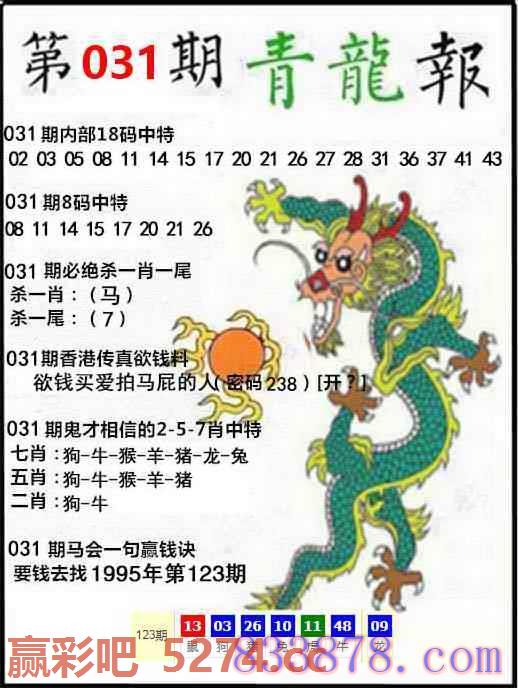 第031期 青龍報
031期内部18码中特
02 03 05 08 11 14 15 17 20 21 26 27 28 31 36 37 41 43
031期8码中特
08 11 14 15 17 20 21 26
031 期必绝杀一肖一尾
杀一肖：（马）
杀一尾：（7）
031期香港传真欲钱料
欲钱买爱拍马屁的人(密码238)[开？]
031期鬼才相信的2-5-7肖中特
七肖：狗-牛-猴-羊-猪-龙-兔
五肖：狗-牛-猴-羊-猪
二肖：狗-牛
031 期马会一句赢钱诀
要钱去找1995年第123期
123期 13 03 26 10 11 48 09
鼠 狗 猪 兔 虎 牛 龙
赢彩吧 5274.cc
833878.com